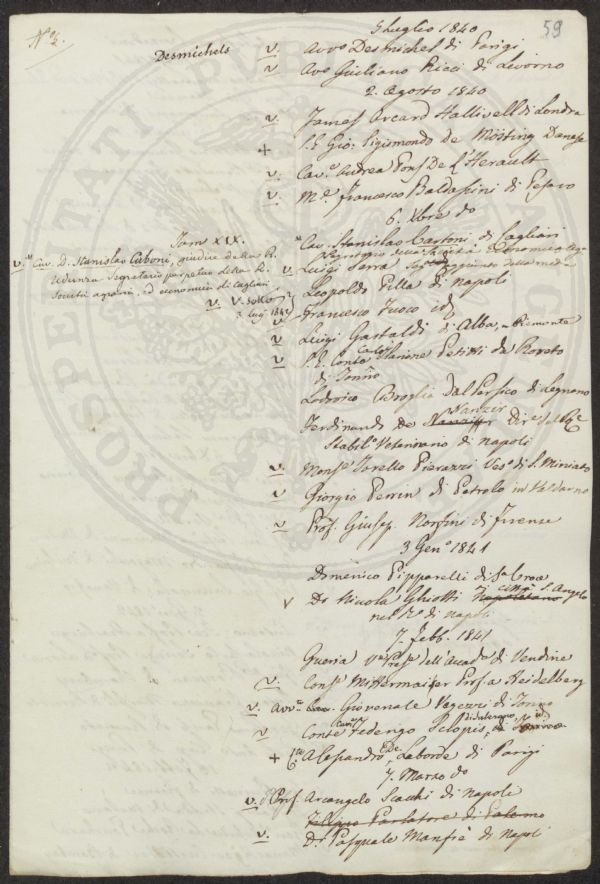 N°2.
59
5 Luglio 1840
Desmichels
v. Avvo Desmichel di Parigi
v Avo Giuliano Ricci di Livorno
2. Agosto 1840
v. James Orcard Hallivell di Londra
+ S. E. Gio: Sigismondo de Mösting Danese
v. Cav. Andrea Pons De L'Herault
v. Mse Francesco Baldassini di Pesaro
6. Xbre do
Cav. Stanislao Cartoni di Cagliari
v. Cav. D. Stanislao Caboni, giudice della R.
Udienza Segretario perpetuo della R.
Società agraria, ed economica di Cagliari,
v. Luigi Serra
v. V. sotto
3 Lug. 1842
Leopoldo Pilla di Napoli
Francesco Fuoco id
v Luigi Gastaldi di Alba, Piemonte
v S. E. Conte Carlo Ilarione Petitti da Roreto
di Torino
Lodovico Broglia Dal Persico di Legnano
Ferdinando de Nanzio Dire del
Stabilo Veterinario di Napoli
v. Monse Torello Pierazzi Veso di S. Miniato
v Giorgio Perrin di Petrolo in Valdarno
v Prof. Giusep. Norfini di Firenze
3 Geno 1841
Domenico Pipparelli di Sa Croce
v Do Nicola Ghiotti Napoletano Città S. Angelo
nel Ro di Napoli
7. febb. 1841
Queria Prese dell'Accada di Vendine
v. Conse Mittermaier Prof. a Heidelberg
v. Avvo Giovenale Vegezzi di Torino
v Conte Federigo Sclopis, di
+ Alessandro De Laborde di Parigi
7. Marzo do
v. Prof. Arcangelo Scacchi di Napoli
Filippo Parlatore di Palermo
v. Dr Pasquale Manfrè di Napoli